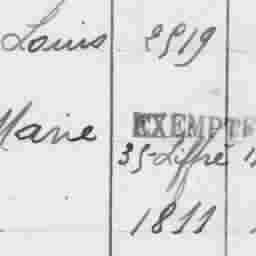 Louis 2519
Marie EXEMPTE
35-Liffré
1811